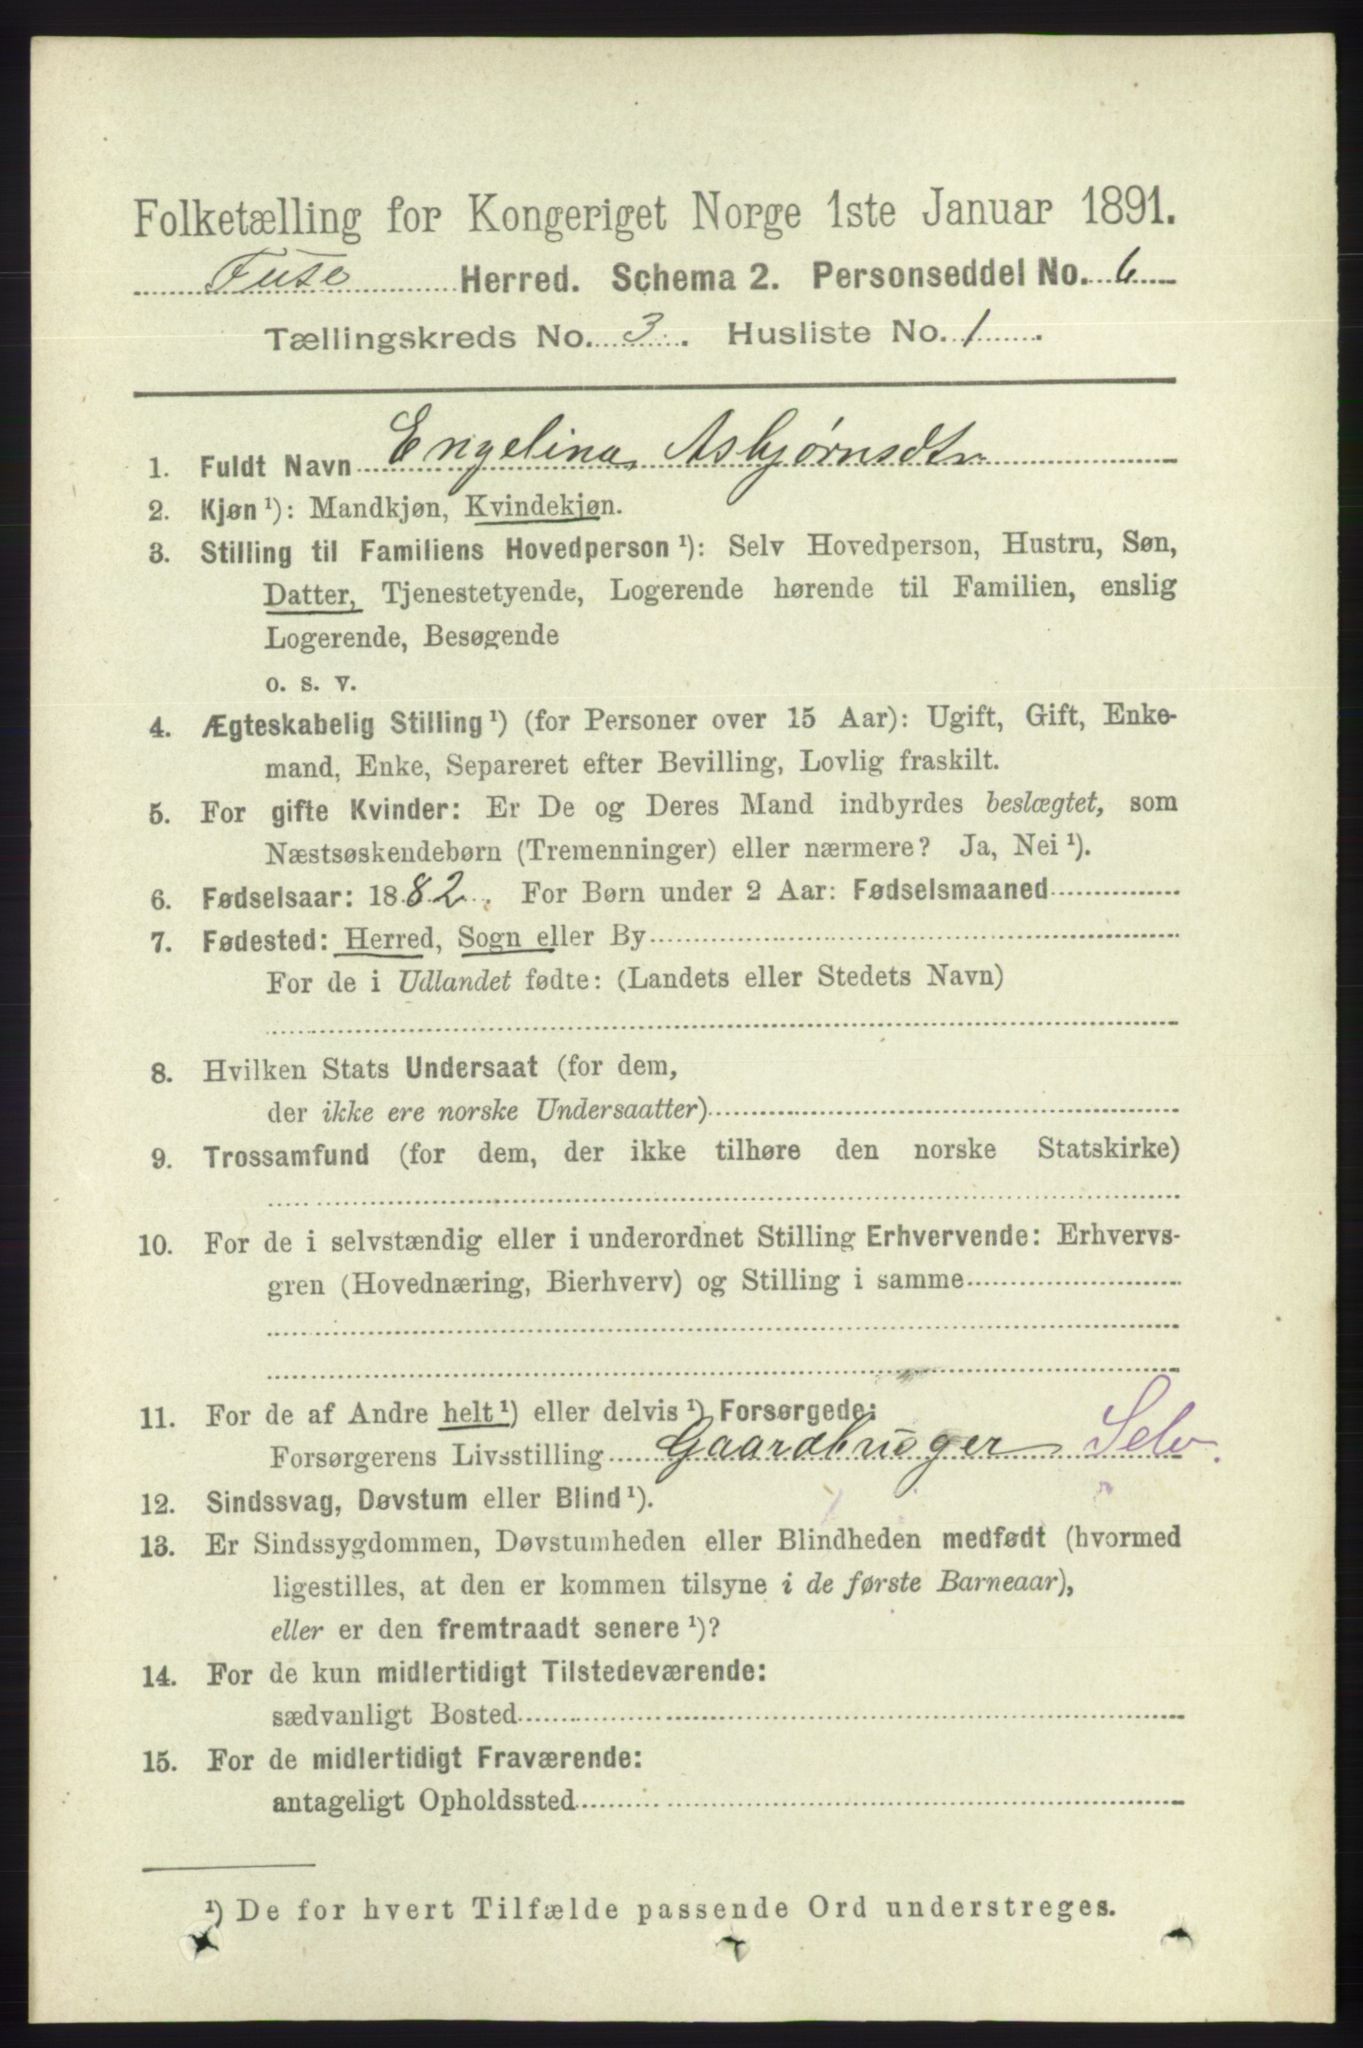 Folketælling for Kongeriget Norge 1ste Januar 1891.
Fuse Herred. Schema 2. Personseddel No. 6
Tællingskreds No. 3. Husliste No. 1.
1. Fuldt Navn Engelina Asbjørnsdtr
2. Kjøn ¹): Mandkjøn, Kvindekjøn.
3. Stilling til Familiens Hovedperson ¹): Selv Hovedperson, Hustru, Søn,
Datter, Tjenestetyende, Logerende hørende til Familien, enslig
Logerende, Besøgende
o. s. v.
4. Ægteskabelig Stilling ¹) (for Personer over 15 Aar): Ugift, Gift, Enke-
mand, Enke, Separeret efter Bevilling, Lovlig fraskilt.
5. For gifte Kvinder: Er De og Deres Mand indbyrdes beslægtet, som
Næstsøskendebørn (Tremenninger) eller nærmere? Ja, Nei ¹).
6. Fødselsaar: 1882. For Børn under 2 Aar: Fødselsmaaned
7. Fødested: Herred, Sogn eller By
For de i Udlandet fødte: (Landets eller Stedets Navn)
8. Hvilken Stats Undersaat (for dem,
der ikke ere norske Undersaatter)
9. Trossamfund (for dem, der ikke tilhøre den norske Statskirke)
10. For de i selvstændig eller i underordnet Stilling Erhvervende: Erhvervs-
gren (Hovednæring, Bierhverv) og Stilling i samme
11. For de af Andre helt ¹) eller delvis ¹) Forsørgede:
Forsørgerens Livsstilling Gaardbruger Selv.
12. Sindssvag, Døvstum eller Blind ¹).
13. Er Sindssygdommen, Døvstumheden eller Blindheden medfødt (hvormed
ligestilles, at den er kommen tilsyne i de første Barneaar),
eller er den fremtraadt senere ¹)?
14. For de kun midlertidigt Tilstedeværende:
sædvanligt Bosted
15. For de midlertidigt Fraværende:
antageligt Opholdssted
¹) De for hvert Tilfælde passende Ord understreges.